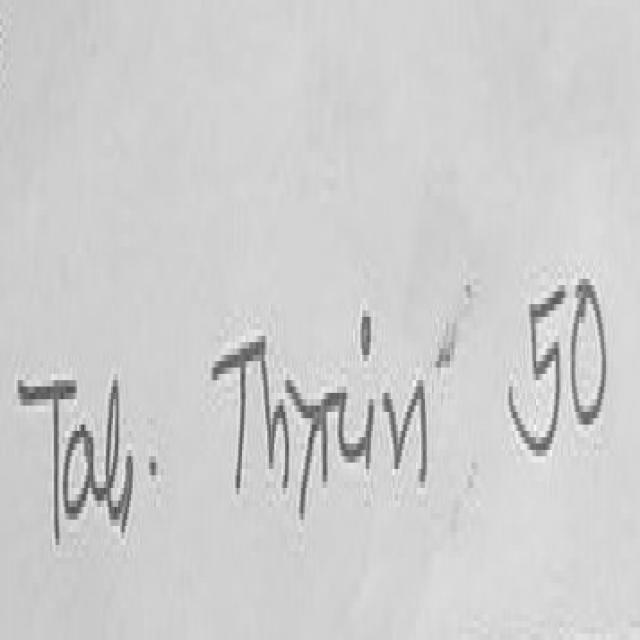 Tab. Thrin 50